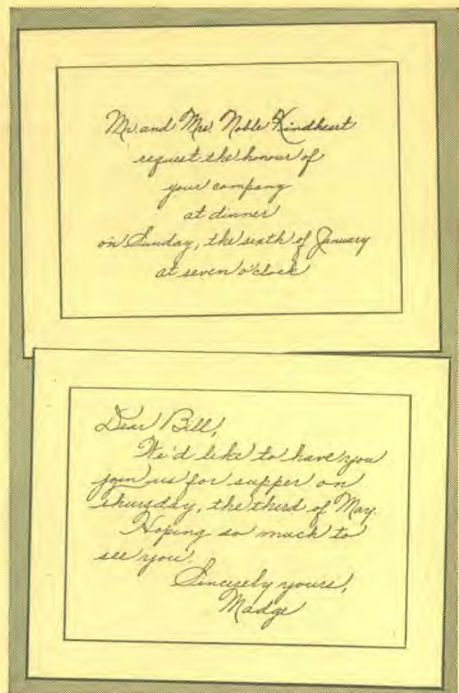 Mr. and Mrs. Noble Kindheart
request the honour of
your company
at dinner
on Sunday, the sixth of January
at seven o'clock
Dear Bill,
We'd like to have you
join us for supper on
Thursday, the third of May.
Hoping so much to
see you.
Sincerely yours,
Madge